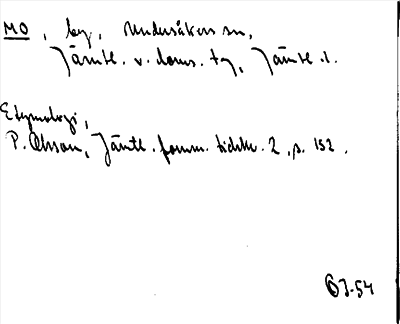 MO, by, Undersåkers sn,
Jämtl. v. doms. tg, Jämtl. l.
Etymologi,
P. Olsson, Jämtl. fornm. tidskr. 2, s. 152.
OJ-54